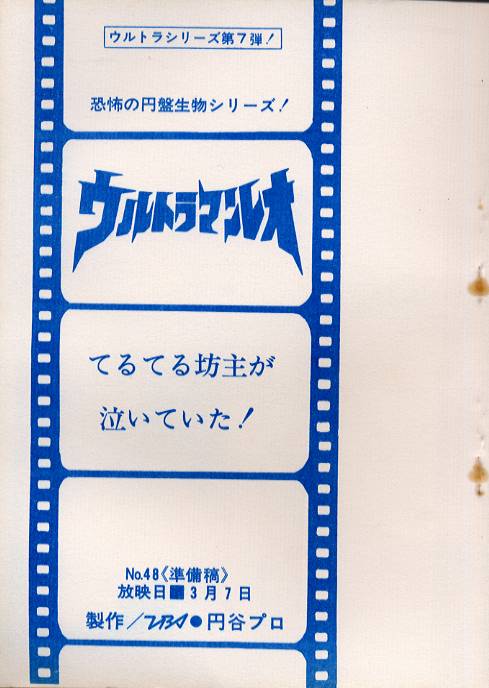 ウルトラシリーズ第7弾!
恐怖の円盤生物シリーズ!
ウルトラマンレオ
てるてる坊主が
泣いていた!
No.48《準備稿》
放映日■3月7日
製作/TBS●円谷プロ